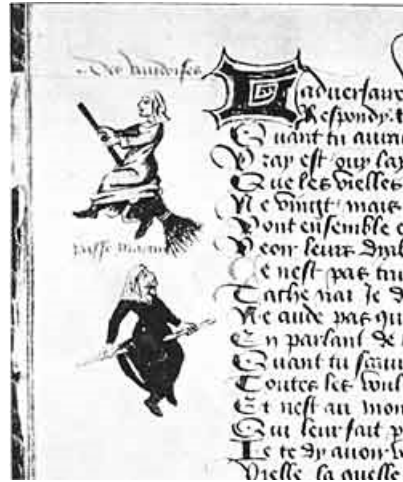 Des vaudoises
Ladversaire
Respondy
Quant tu auras
Vray est ouy lay
Que les vielles
Ne vingt mais
passe martin
Vont ensemble
Veoir leurs dyab
Ce nest pas tru
Je d
Ne cuide pas qu
En parlant de
Quant tu scaur
Toutes les voul
Et nest au mon
Qui leur fait p
Je te dy auoir v
Vielle la quelle